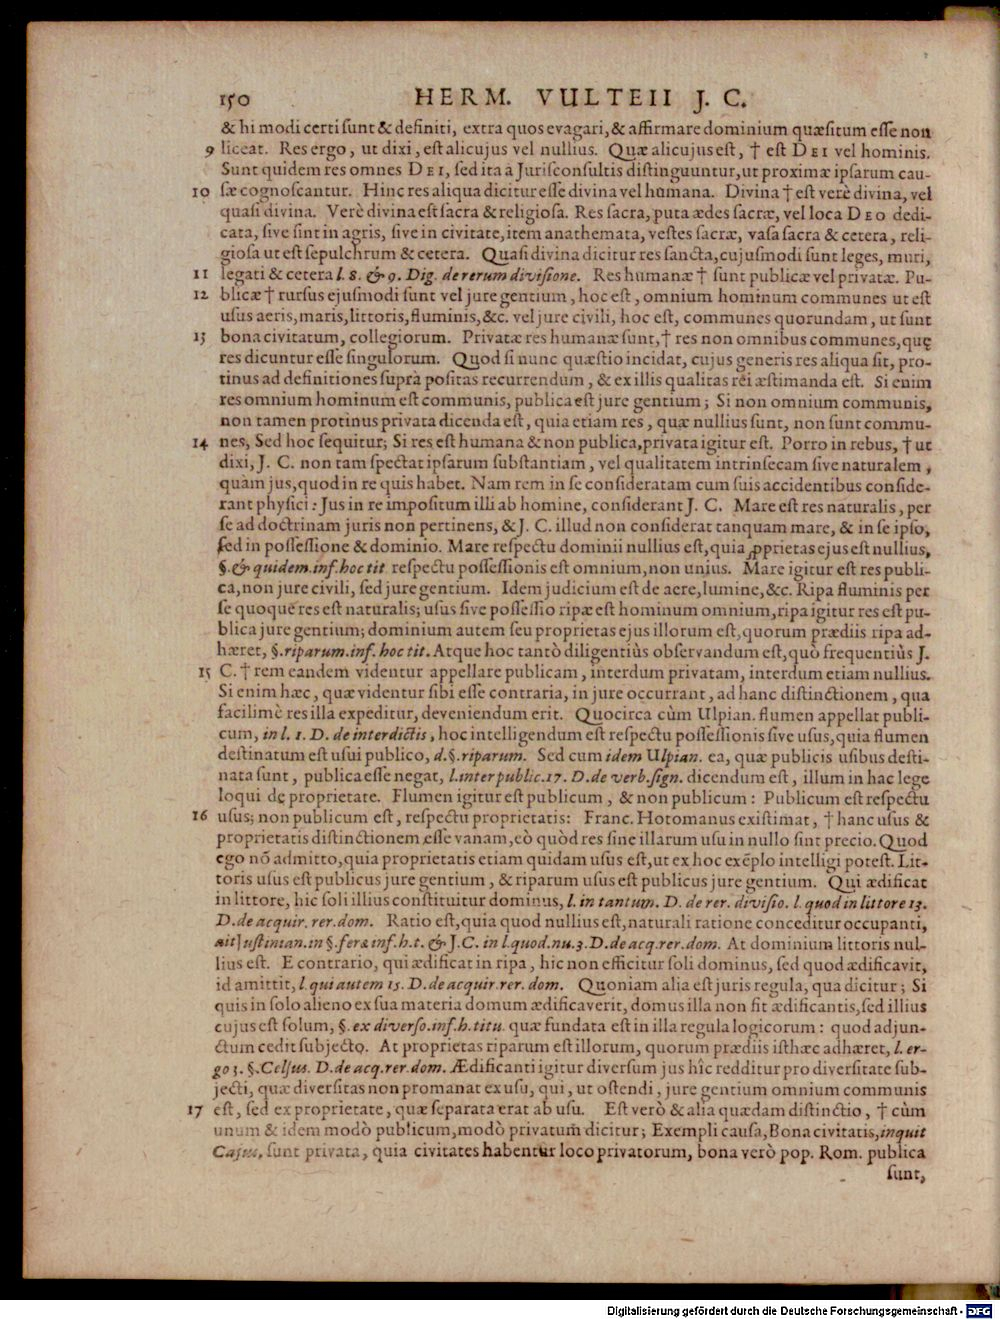 150 HERM. VULTEII J. C.
& hi modi certi ſunt & definiti, extra quos evagari, & affirmare dominium quæſitum eſſe non
9 liceat. Res ergo, ut dixi, eſt alicujus vel nullius. Quæ alicujus eſt, † eſt DEI vel hominis.
Sunt quidem res omnes DEI, ſed ita à Juriſconſultis diſtinguuntur, ut proximæ ipſarum cau-
10 ſæ cognoſcantur. Hinc res aliqua dicitur eſſe divina vel humana. Divina † eſt verè divina, vel
quaſi divina. Verè divina eſt ſacra & religioſa. Res ſacra, puta ædes ſacræ, vel loca DEO dedi-
cata, ſive ſint in agris, ſive in civitate, item anathemata, veſtes ſacræ, vaſa ſacra & cetera, reli-
gioſa ut eſt ſepulchrum & cetera. Quaſi divina dicitur res ſancta, cujuſmodi ſunt leges, muri,
11 legati & cetera l. 8. & 9. Dig. de rerum diviſione. Res humanæ † ſunt publicæ vel privatæ. Pu-
12 blicæ † rurſus ejuſmodi ſunt vel jure gentium, hoc eſt, omnium hominum communes ut eſt
uſus aeris, maris, littoris, fluminis, &c. vel jure civili, hoc eſt, communes quorundam, ut ſunt
13 bona civitatum, collegiorum. Privatæ res humanæ ſunt, † res non omnibus communes, quę
res dicuntur eſſe ſingulorum. Quod ſi nunc quæſtio incidat, cujus generis res aliqua ſit, pro-
tinus ad definitiones ſuprà poſitas recurrendum, & ex illis qualitas rei æſtimanda eſt. Si enim
res omnium hominum eſt communis, publica eſt jure gentium; Si non omnium communis,
non tamen protinus privata dicenda eſt, quia etiam res, quæ nullius ſunt, non ſunt commu-
14 nes, Sed hoc ſequitur; Si res eſt humana & non publica, privata igitur eſt. Porro in rebus, † ut
dixi, J. C. non tam ſpectat ipſarum ſubſtantiam, vel qualitatem intrinſecam ſive naturalem,
quàm jus, quod in re quis habet. Nam rem in ſe conſideratam cum ſuis accidentibus conſide-
rant phyſici: Jus in re impoſitum illi ab homine, conſiderant J. C. Mare eſt res naturalis, per
ſe ad doctrinam juris non pertinens, & J. C. illud non conſiderat tanquam mare, & in ſe ipſo,
ſed in poſſeſſione & dominio. Mare reſpectu dominii nullius eſt, quia ꝓprietas ejus eſt nullius,
§. & quidem. inf. hoc tit. reſpectu poſſeſſionis eſt omnium, non unius. Mare igitur eſt res publi-
ca, non jure civili, ſed jure gentium. Idem judicium eſt de aere, lumine, &c. Ripa fluminis per
ſe quoque res eſt naturalis; uſus ſive poſſeſſio ripæ eſt hominum omnium, ripa igitur res eſt pu-
blica jure gentium; dominium autem ſeu proprietas ejus illorum eſt, quorum prædiis ripa ad-
hæret, §. riparum. inf. hoc tit. Atque hoc tantò diligentiùs obſervandum eſt, quò frequentiùs J.
15 C. † rem eandem videntur appellare publicam, interdum privatam, interdum etiam nullius.
Si enim hæc, quæ videntur ſibi eſſe contraria, in jure occurrant, ad hanc diſtinctionem, qua
facilimè res illa expeditur, deveniendum erit. Quocirca cùm Ulpian. flumen appellat publi-
cum, in l. 1. D. de interdictis, hoc intelligendum eſt reſpectu poſſeſſionis ſive uſus, quia flumen
deſtinatum eſt uſui publico, d. §. riparum. Sed cum idem Ulpian. ea, quæ publicis uſibus deſti-
nata ſunt, publica eſſe negat, l. inter public. 17. D. de verb. ſign. dicendum eſt, illum in hac lege
loqui de proprietate. Flumen igitur eſt publicum, & non publicum: Publicum eſt reſpectu
16 uſus; non publicum eſt, reſpectu proprietatis: Franc. Hotomanus exiſtimat, † hanc uſus &
proprietatis diſtinctionem eſſe vanam, eò quòd res ſine illarum uſu in nullo ſint precio. Quod
ego nõ admitto, quia proprietatis etiam quidam uſus eſt, ut ex hoc exẽplo intelligi poteſt. Lit-
toris uſus eſt publicus jure gentium, & riparum uſus eſt publicus jure gentium. Qui ædificat
in littore, hic ſoli illius conſtituitur dominus, l. in tantum. D. de rer. diviſio. l. quod in littore 13.
D. de acquir. rer. dom. Ratio eſt, quia quod nullius eſt, naturali ratione conceditur occupanti,
ait Juſtinian. in §. feræ inf. h. t. & J. C. in l. quod. nu. 3. D. de acq. rer. dom. At dominium littoris nul-
lius eſt. E contrario, qui ædificat in ripa, hic non efficitur ſoli dominus, ſed quod ædificavit,
id amittit, l. qui autem 15. D. de acquir. rer. dom. Quoniam alia eſt juris regula, qua dicitur; Si
quis in ſolo alieno ex ſua materia domum ædificaverit, domus illa non fit ædificantis, ſed illius
cujus eſt ſolum, §. ex diverſo. inf. h. titu. quæ fundata eſt in illa regula logicorum: quod adjun-
ctum cedit ſubjecto. At proprietas riparum eſt illorum, quorum prædiis iſthæc adhæret, l. er-
go 3. §. Celſus. D. de acq. rer. dom. Ædificanti igitur diverſum jus hîc redditur pro diverſitate ſub-
jecti, quæ diverſitas non promanat ex uſu, qui, ut oſtendi, jure gentium omnium communis
17 eſt, ſed ex proprietate, quæ ſeparata erat ab uſu. Eſt verò & alia quædam diſtinctio, † cùm
unum & idem modò publicum, modò privatum dicitur; Exempli cauſa, Bona civitatis, inquit
Cajus, ſunt privata, quia civitates habentur loco privatorum, bona verò pop. Rom. publica
ſunt,
Digitalisierung gefördert durch die Deutsche Forschungsgemeinschaft - DFG